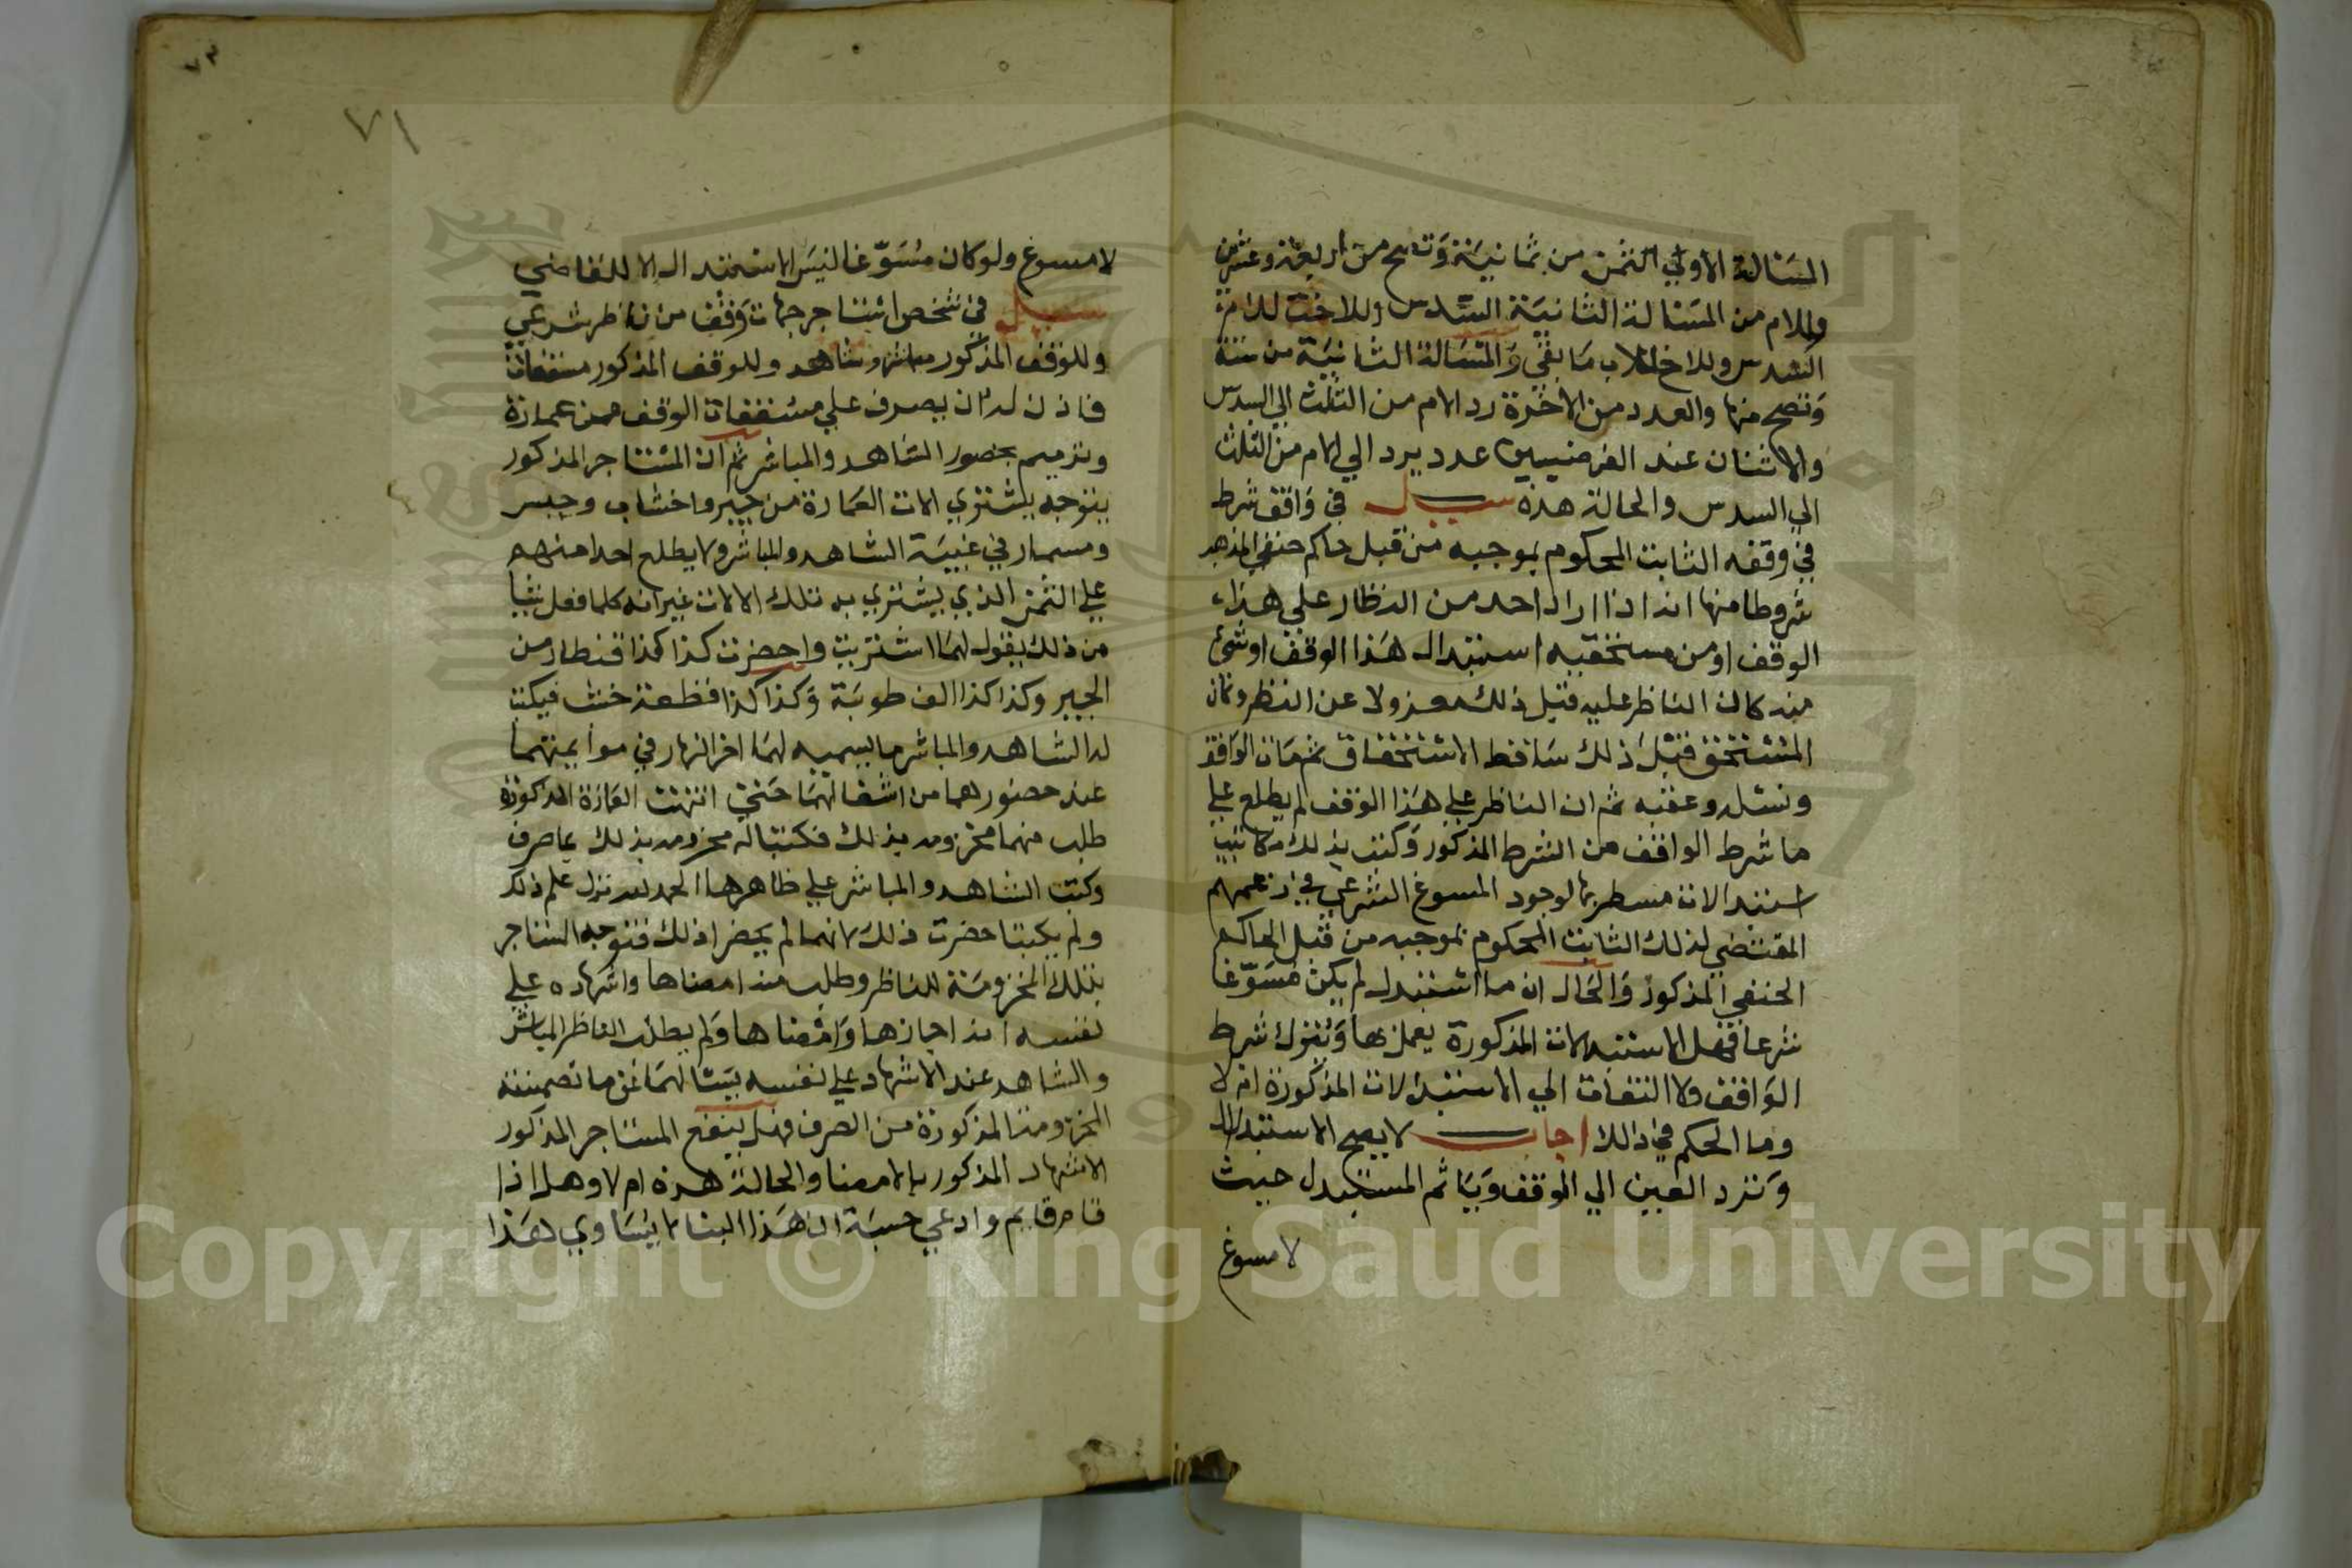 المسالة الاولي الثمن من ثمانية وتصح من اربعة وعشرين
وللام من المسالة الثانية السدس وللاخت للام
السدس وللاخ للاب ما بقي والمسالة الثانية من ستة
وتصح منها والعدد من الاخوة رد الام من الثلث الي السدس
والاثنان عند الفرضيين عدد يرد الي الام من الثلث
الي السدس والحالة هذه سيل في واقف شرط
في وقفه الثابت المحكوم بموجبه من قبل حاكم حنفي المذهب
شروطا منها انه اذا اراد احد من النظار علي هذا
الوقف او من مستحقيه استبدال هذا الوقف او شئ
منه كان الناظر عليه قبل ذلك معزولا عن النظر وكان
المستحق قبل ذلك ساقط الاستحقاق ثم مات الواقف
ونسله وعقبه ثم ان الناظر علي هذا الوقف لم يطلع علي
ما شرط الواقف من الشرط المذكور وكتب بذلك مكاتيب
استبدالات مسطر بها لوجود المسوغ الشرعي في زعمهم
المقتضي لذلك الثابت المحكوم بموجبه من قبل الحاكم
الحنفي المذكور والحال ان ما استبدل لم يكن مسوغا
شرعا فهل الاستبدالات المذكورة يعمل بها ويترك شرط
الواقف ولا التفات الي الاستبدالات المذكورة ام لا
وما الحكم في ذلك اجاب لا يصح الاستبدال
وترد العين الي الوقف وياثم المستبدل حيث
لا مسوغ
٧٣
٧١
لا مسوغ ولو كان مسوغا ليس الاستبدال الا للقاضي
سيل في شخص استاجر جهات وقف من ناظر شرعي
وللوقف المذكور مباشر وشاهد وللوقف المذكور مسقفات
فاذن له ان يصرف علي مسقفات الوقف من عمارة
وترميم بحضور الشاهد والمباشر ثم ان المستاجر المذكور
يتوجه يشتري الات العمارة من جير واخشاب وجبس
ومسمار في غيبة الشاهد والمباشر ولا يطلع احدا منهم
علي الثمن الذي يشتري به تلك الالات غير انه كلما فعل شيا
من ذلك يقول لهما اشتريت واحضرت كذا كذا قنطار من
الجير وكذا كذا الف طوبة وكذا كذا قطعة خشب فيكتب
له الشاهد والمباشر ما يسميه لهما اخر النهار في
عند حضورهما من اشغالهما حتي انتهت العمارة المذكورة
طلب منهما مخزومه بذلك فكتبا له مخزومه بذلك بما صرف
وكتب الشاهد والمباشر علي ظاهرها الحمد لله نزل علم ذلك
ولم يكتبا حضرت ذلك لانهما لم يحضرا ذلك فتوجه المستاجر
بتلك المخزومة للناظر وطلب منه امضاها واشهاده علي
نفسه انه اجازها وامضاها ولم يطلب الناظر المباشر
والشاهد عند الاشهاد علي نفسه يسالهما عن ما تضمنته
المخزومة المذكورة من الصرف فهل ينفع المستاجر المذكور
الاشهاد المذكور بالامضا والحالة هذه ام لا وهل اذا
قام قايم وادعي حسبة ان هذا البنا لا يساوي هذا
Copyright © King Saud University